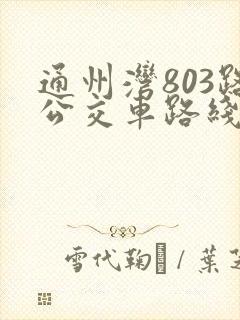 通州灣803路
公交車路綫
雪代鞠 / 葉芝